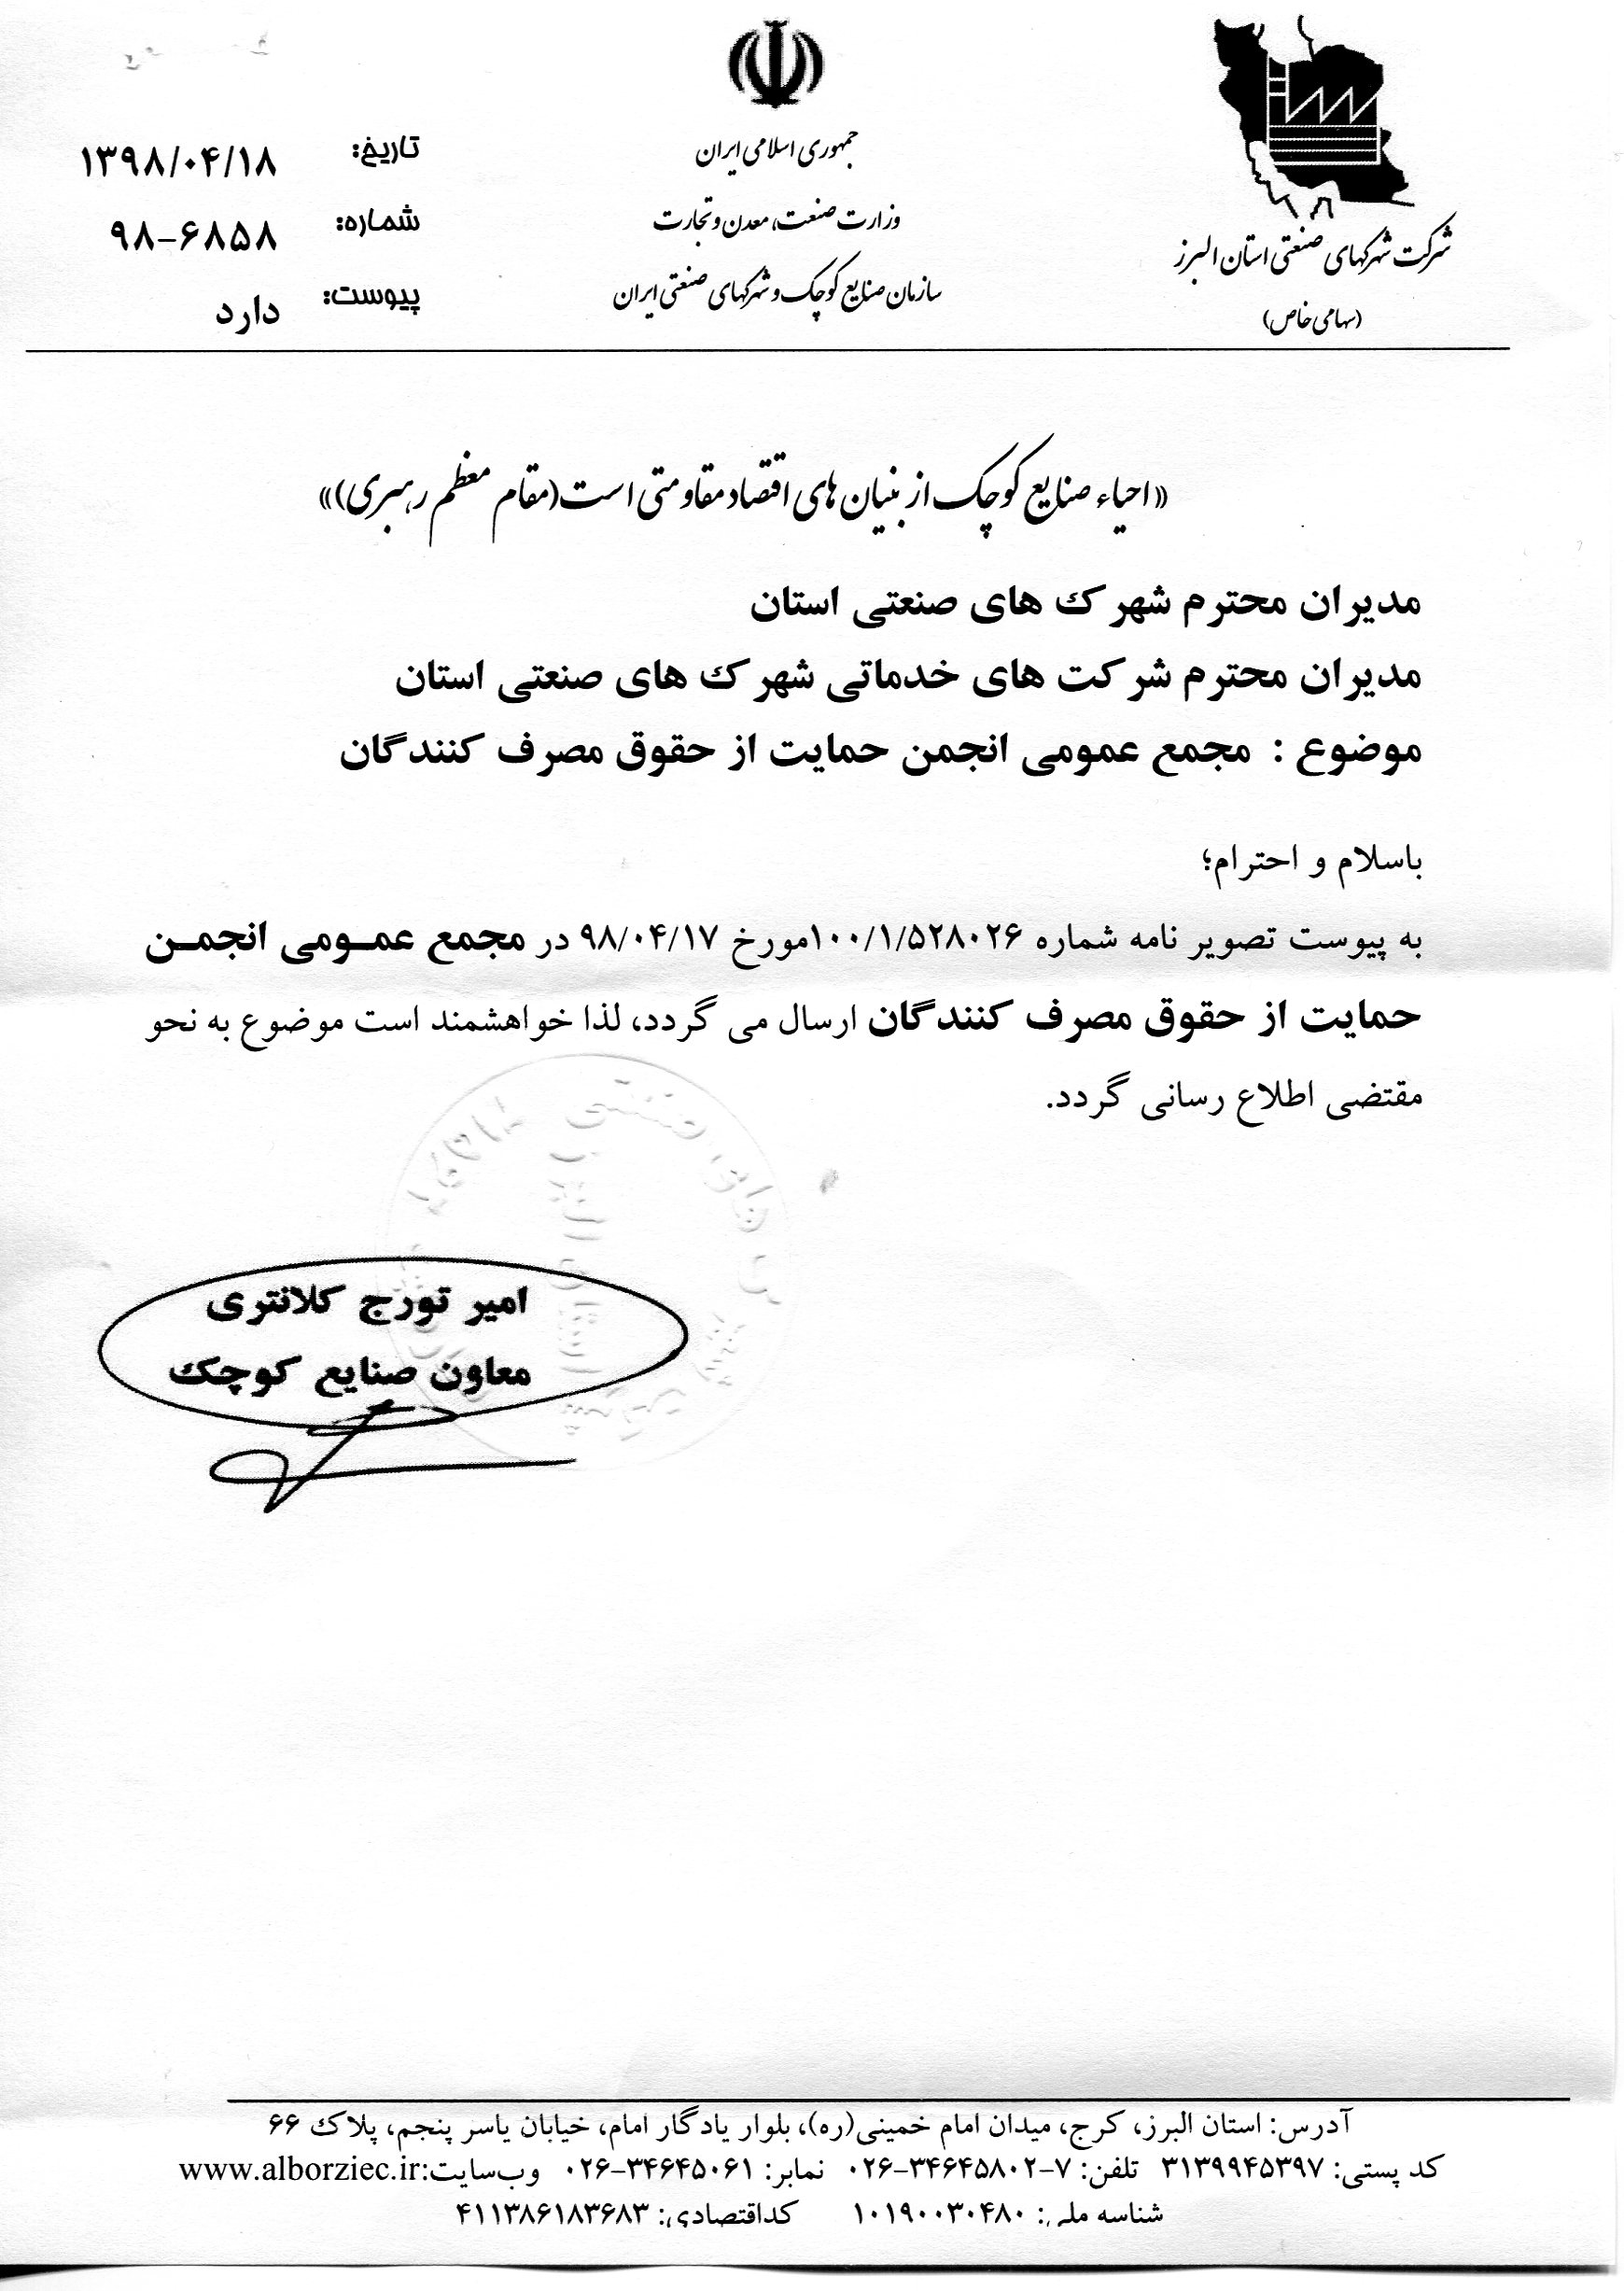 شرکت شهرکهای صنعتی استان البرز
(سهامی خاص)
جمهوری اسلامی ایران
وزارت صنعت، معدن و تجارت
سازمان صنایع کوچک و شهرکهای صنعتی ایران
تاریخ: ۱۳۹۸/۰۴/۱۸
شماره: ۹۸-۶۸۵۸
پیوست: دارد
«احیاء صنایع کوچک از بنیان های اقتصاد مقاومتی است(مقام معظم رهبری)»
مدیران محترم شهرک های صنعتی استان
مدیران محترم شرکت های خدماتی شهرک های صنعتی استان
موضوع : مجمع عمومی انجمن حمایت از حقوق مصرف کنندگان
باسلام و احترام؛
به پیوست تصویر نامه شماره ۱۰۰/۱/۵۲۸۰۲۶مورخ ۹۸/۰۴/۱۷ در مجمع عمومی انجمن
حمایت از حقوق مصرف کنندگان ارسال می گردد، لذا خواهشمند است موضوع به نحو
مقتضی اطلاع رسانی گردد.
امیر تورج کلانتری
معاون صنایع کوچک
آدرس: استان البرز، کرج، میدان امام خمینی(ره)، بلوار یادگار امام، خیابان یاسر پنجم، پلاک ۶۶
کد پستی: ۳۱۳۹۹۴۵۳۹۷ تلفن: ۷-۰۲۶-۳۴۶۴۵۸۰۲ نمابر: ۰۲۶-۳۴۶۴۵۰۶۱ وب‌سایت:www.alborziec.ir
شناسه ملی: ۱۰۱۹۰۰۳۰۴۸۰ کداقتصادی: ۴۱۱۳۸۶۱۸۳۶۸۳